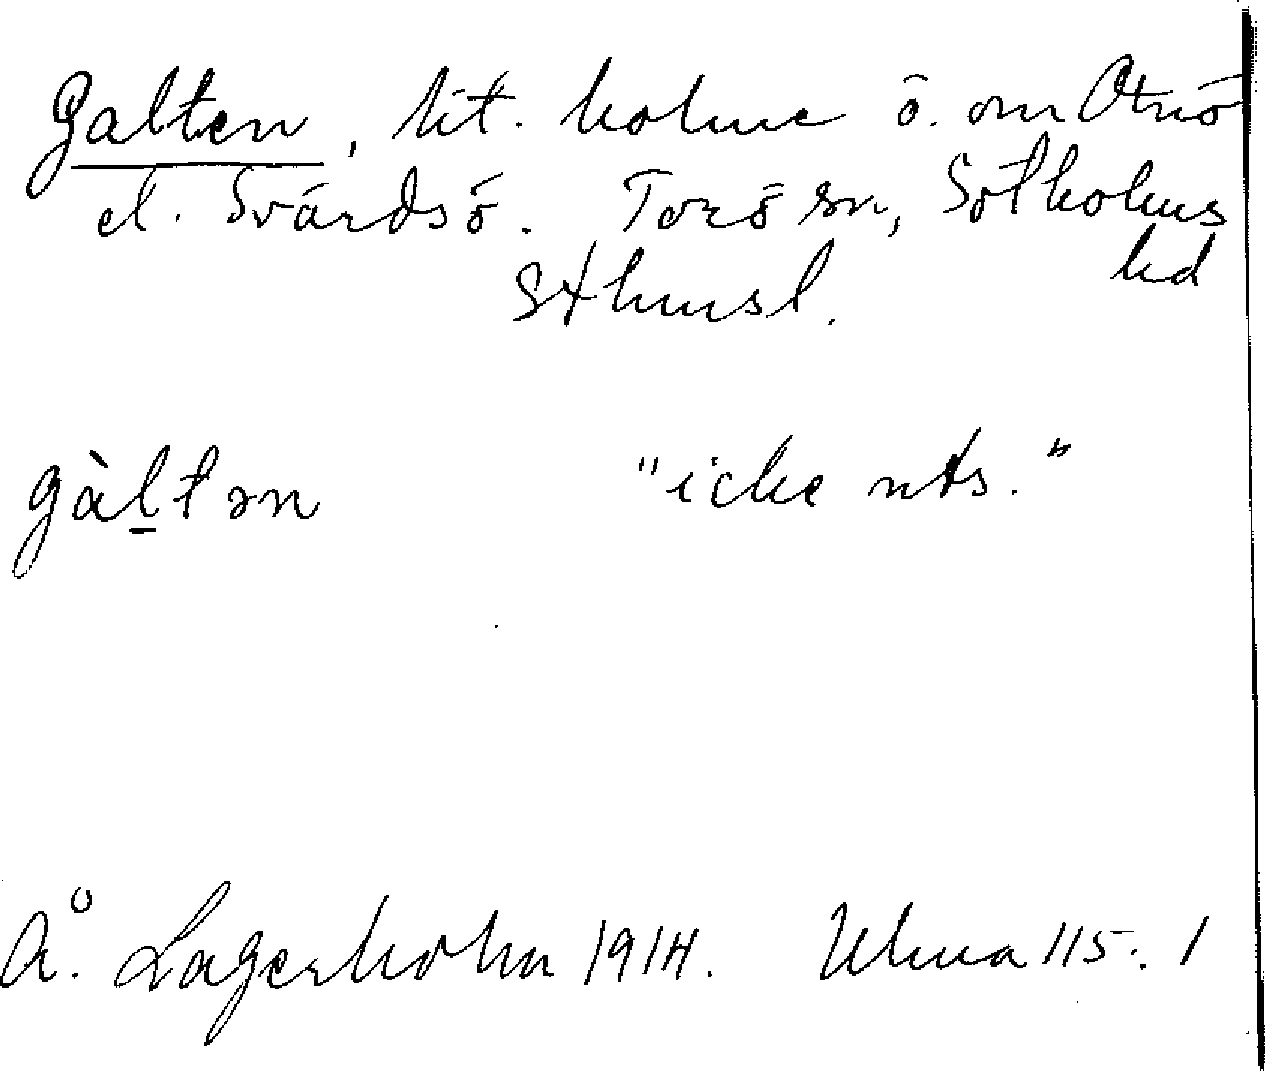 Galten, lit. holme ö. om Otnö
el. Svärdsö. Torö sn, Sotholms
hd
Sthmsl.
gàl̠tən "icke uts."
Å. Lagerholm 1914. Ulma 115:1